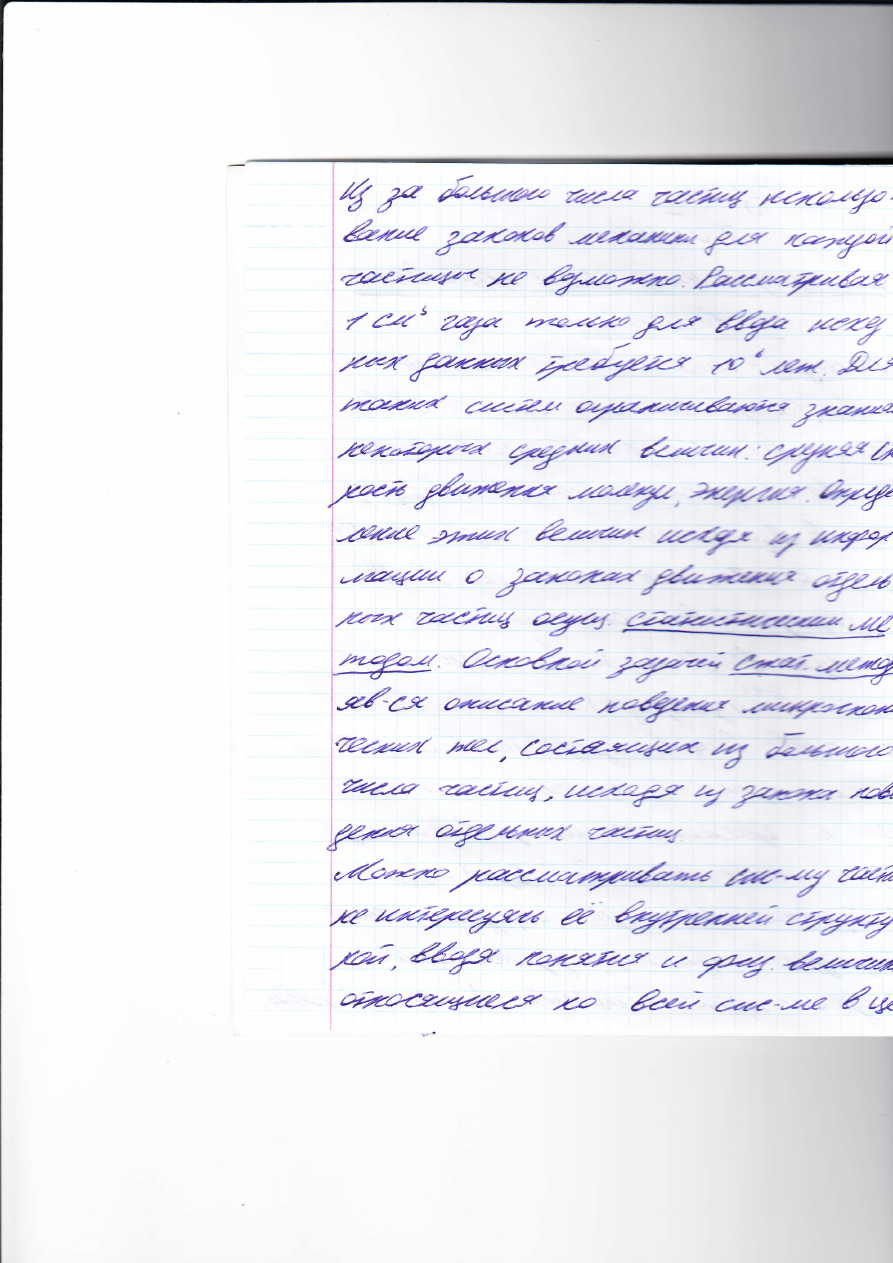 Из за большого числа частиц использо-
вание законов механики для каждой
частицы не возможно. Рассматривая
1 см³ газа только для ввода исход
ных данных требуется 10⁶ лет. Для
таких систем ограничиваются знание
некоторых средних величин: средняя ск
рость движения молекул, энергия. Опреде
ление этих величин исходя из инфор
мации о законах движения отдель
ных частиц осущ. статистическим ме
тодом. Основной задачей стат. метод
яв-ся описание поведения
ческих тел, состоящих из большого
числа частиц, исходя из закона пове
дения отдельных частиц.
Можно рассматривать сис-му части
не интересуясь её внутренней структу
рой, вводя понятия и физ. величин
относящиеся ко всей сис-ме в це